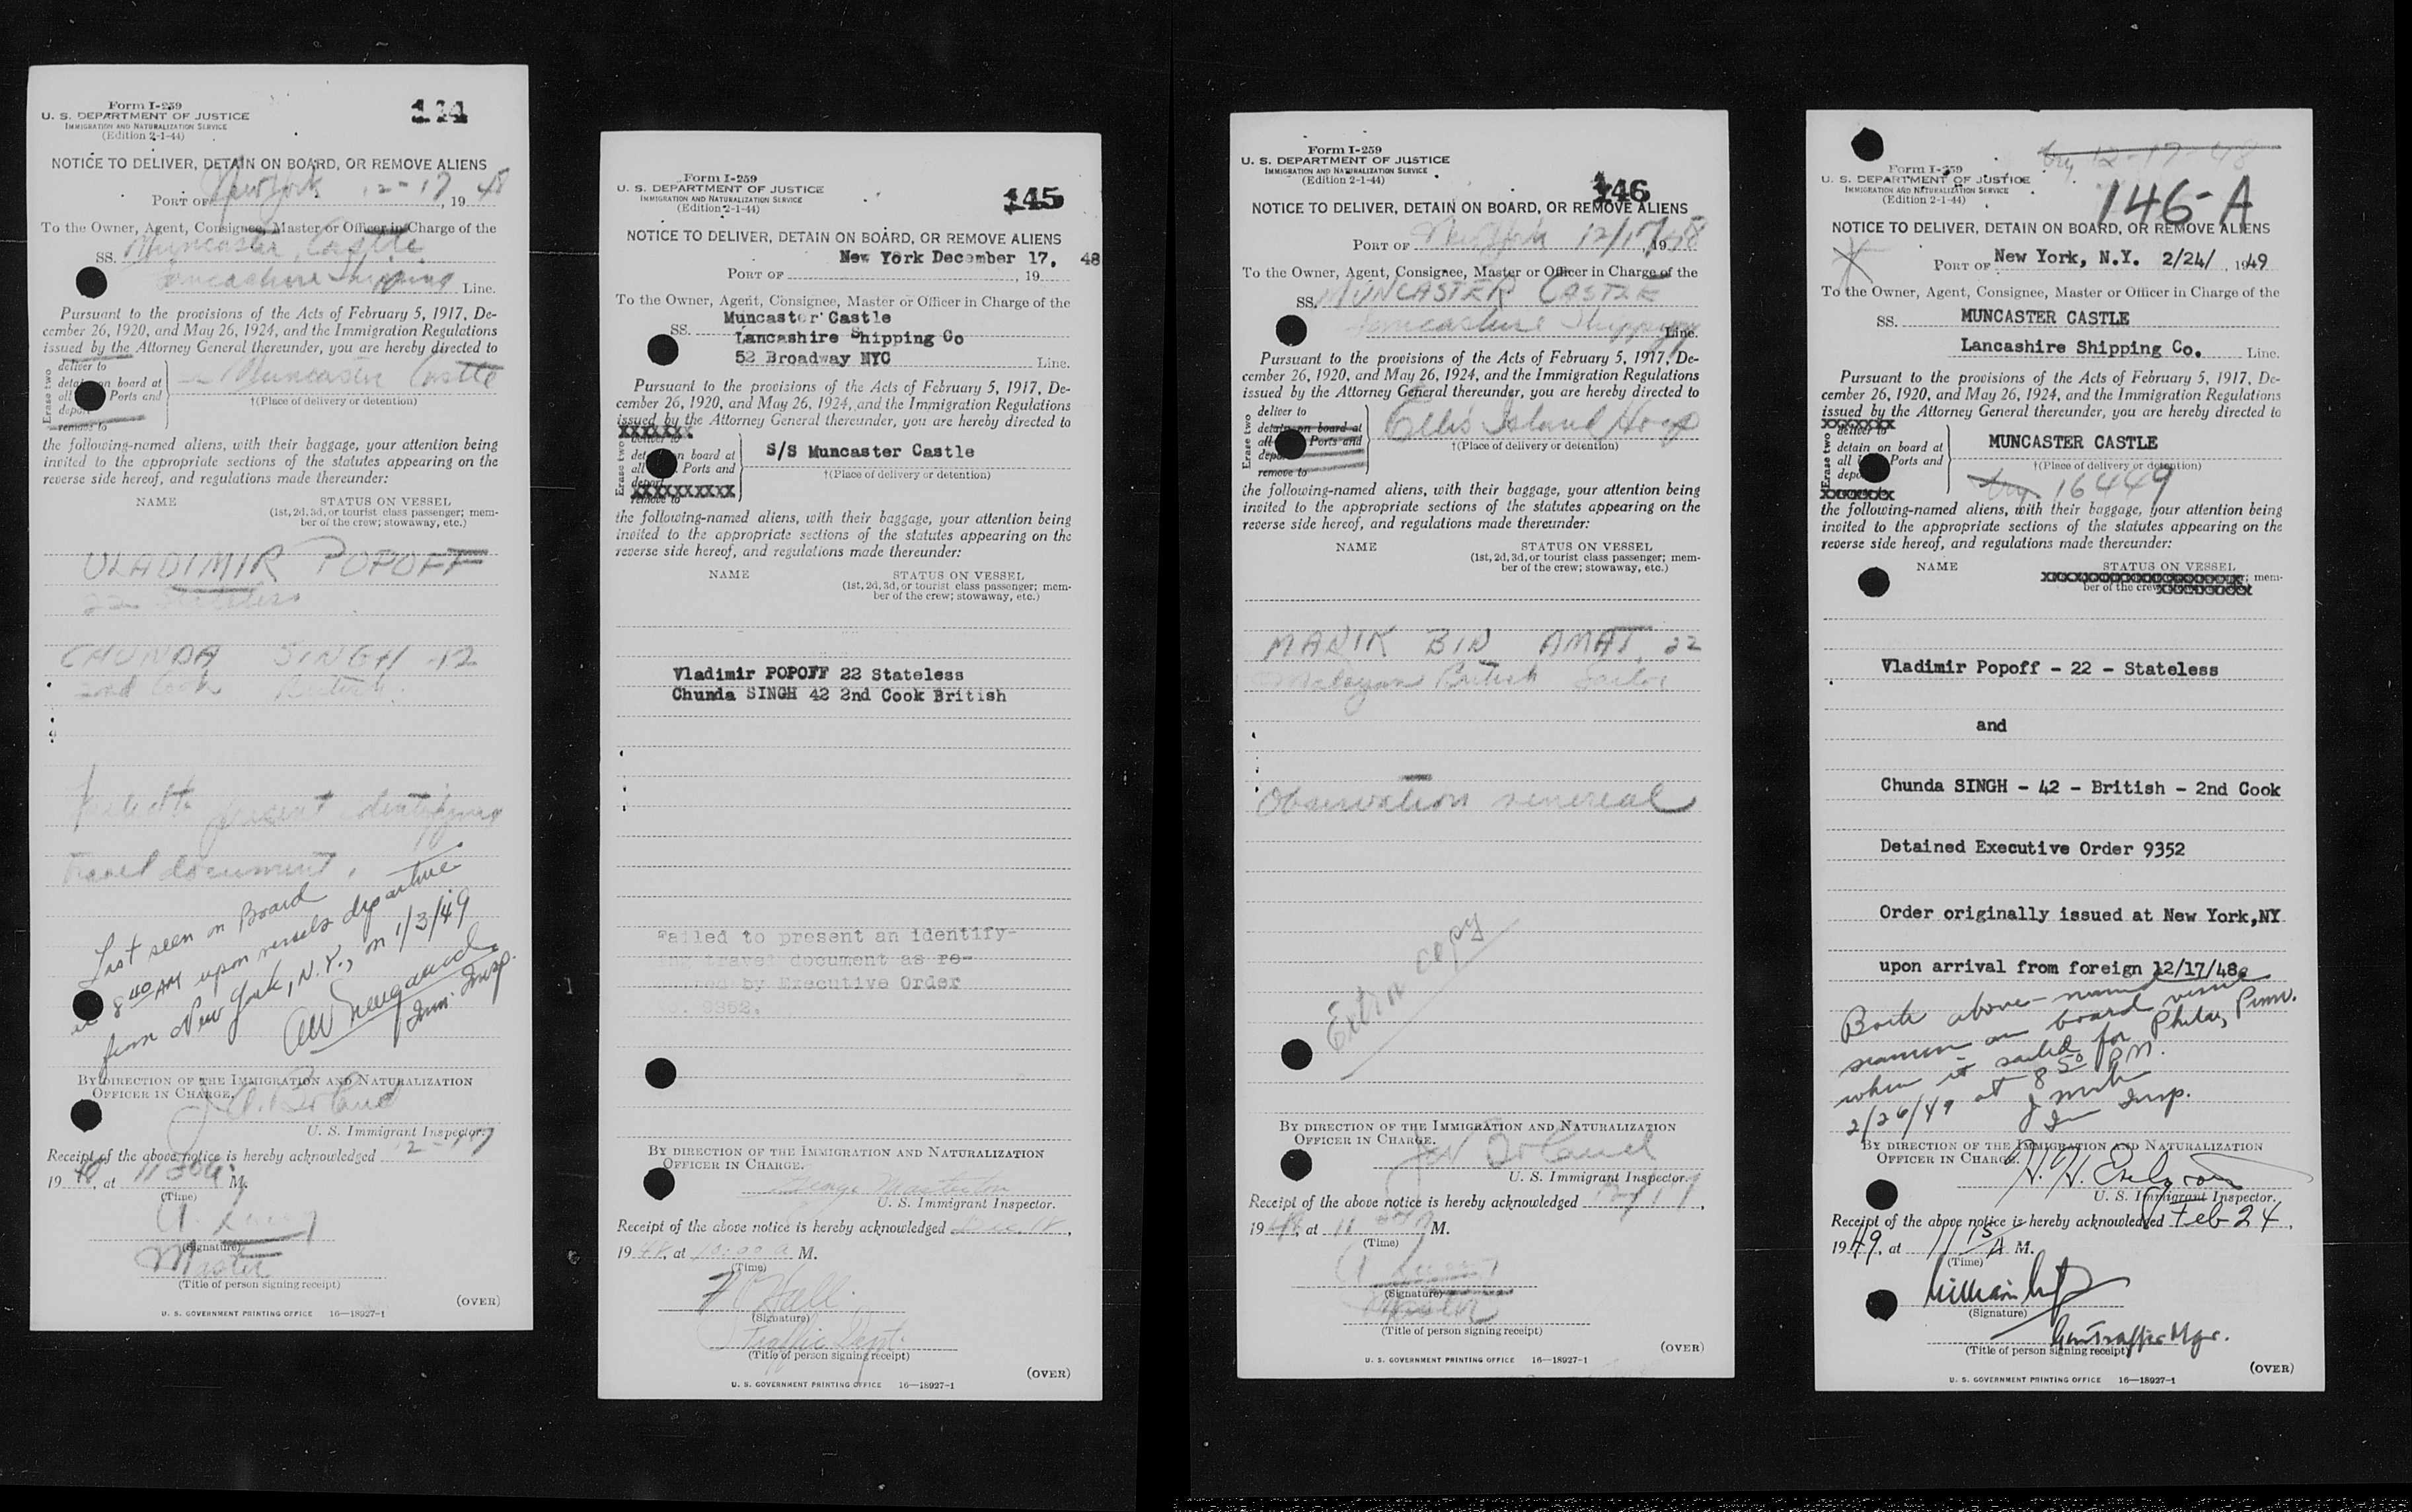 Form I-259
U. S. DEPARTMENT OF JUSTICE
IMMIGRATION AND NATURALIZATION SERVICE
(Edition 2-1-44)
144
NOTICE TO DELIVER, DETAIN ON BOARD, OR REMOVE ALIENS
PORT OF New York 12-17, 1948
To the Owner, Agent, Consignee, Master or Officer in Charge of the
SS. Muncaster Castle
Lancashire Shipping Line.
Pursuant to the provisions of the Acts of February 5, 1917, De-
cember 26, 1920, and May 26, 1924, and the Immigration Regulations
issued by the Attorney General thereunder, you are hereby directed to
Erase two
deliver to
detain on board at
all Ports and
deport
remove to
Muncaster Castle
†(Place of delivery or detention)
the following-named aliens, with their baggage, your attention being
invited to the appropriate sections of the statutes appearing on the
reverse side hereof, and regulations made thereunder:
NAME STATUS ON VESSEL
(1st, 2d, 3d, or tourist class passenger; mem-
ber of the crew; stowaway, etc.)
VLADIMIR POPOFF
22 Stateless
CHUNDA SINGH 42
2nd Cook British
present identifying
travel document.
Last seen on Board
8 40 AM upon vessels departure
from New York, N.Y., on 1/3/49
Imm. Insp.
BY DIRECTION OF THE IMMIGRATION AND NATURALIZATION
OFFICER IN CHARGE.
J.A. Boland
U. S. Immigrant Inspector.
Receipt of the above notice is hereby acknowledged 12-17
1948, at 11 30a M.
(Time)
(Signature)
Master
(Title of person signing receipt)
U. S. GOVERNMENT PRINTING OFFICE 16—18927-1
(OVER)
Form I-259
U. S. DEPARTMENT OF JUSTICE
IMMIGRATION AND NATURALIZATION SERVICE
(Edition 2-1-44)
145
NOTICE TO DELIVER, DETAIN ON BOARD, OR REMOVE ALIENS
New York December 17, 48
PORT OF , 19
To the Owner, Agent, Consignee, Master or Officer in Charge of the
Muncaster Castle
SS.
Lancashire Shipping Co
52 Broadway NYC Line.
Pursuant to the provisions of the Acts of February 5, 1917, De-
cember 26, 1920, and May 26, 1924, and the Immigration Regulations
issued by the Attorney General thereunder, you are hereby directed to
XXXXXXX
Erase two
deliver to
detain on board at
all Ports and
deport
XXXXXXXXXX
remove to
S/S Muncaster Castle
†(Place of delivery or detention)
the following-named aliens, with their baggage, your attention being
invited to the appropriate sections of the statutes appearing on the
reverse side hereof, and regulations made thereunder:
NAME STATUS ON VESSEL
(1st, 2d, 3d, or tourist class passenger; mem-
ber of the crew; stowaway, etc.)
Vladimir POPOFF 22 Stateless
Chunda SINGH 42 2nd Cook British
Failed to present an identify-
ing travel document as re-
quired by Executive Order
No. 9352.
BY DIRECTION OF THE IMMIGRATION AND NATURALIZATION
OFFICER IN CHARGE.
George Masterton
U. S. Immigrant Inspector.
Receipt of the above notice is hereby acknowledged Dec. 18,
1948, at 10:00 a M.
(Time)
Hall
(Signature)
Traffic Dept.
(Title of person signing receipt)
(OVER)
U. S. GOVERNMENT PRINTING OFFICE 16—18927-1
Form I-259
U. S. DEPARTMENT OF JUSTICE
IMMIGRATION AND NATURALIZATION SERVICE
(Edition 2-1-44)
146
NOTICE TO DELIVER, DETAIN ON BOARD, OR REMOVE ALIENS
PORT OF New York 12/17, 1948
To the Owner, Agent, Consignee, Master or Officer in Charge of the
SS. MUNCASTER CASTLE
Lancashire Shipping Line.
Pursuant to the provisions of the Acts of February 5, 1917, De-
cember 26, 1920, and May 26, 1924, and the Immigration Regulations
issued by the Attorney General thereunder, you are hereby directed to
Erase two
deliver to
detain on board at
all Ports and
deport
remove to
Ellis Island Hosp
†(Place of delivery or detention)
the following-named aliens, with their baggage, your attention being
invited to the appropriate sections of the statutes appearing on the
reverse side hereof, and regulations made thereunder:
NAME STATUS ON VESSEL
(1st, 2d, 3d, or tourist class passenger; mem-
ber of the crew; stowaway, etc.)
MANIK BIN AMAT, 22
Malayan British Sailor
Observation venereal
Extra copy
BY DIRECTION OF THE IMMIGRATION AND NATURALIZATION
OFFICER IN CHARGE.
Boland
U. S. Immigrant Inspector.
Receipt of the above notice is hereby acknowledged 12/17,
1948, at 11 30a M.
(Time)
(Signature)
Master
(Title of person signing receipt)
(OVER)
U. S. GOVERNMENT PRINTING OFFICE 16—18927-1
12-17-48
Form I-259
U. S. DEPARTMENT OF JUSTICE
IMMIGRATION AND NATURALIZATION SERVICE
(Edition 2-1-44)
146-A
NOTICE TO DELIVER, DETAIN ON BOARD, OR REMOVE ALIENS
PORT OF New York, N.Y. 2/24/, 1949
To the Owner, Agent, Consignee, Master or Officer in Charge of the
SS. MUNCASTER CASTLE
Lancashire Shipping Co. Line.
Pursuant to the provisions of the Acts of February 5, 1917, De-
cember 26, 1920, and May 26, 1924, and the Immigration Regulations
issued by the Attorney General thereunder, you are hereby directed to
XXXXXXXX
Erase two
deliver to
detain on board at
all Ports and
deport
XXXXXXXX
MUNCASTER CASTLE
†(Place of delivery or detention)
16449
the following-named aliens, with their baggage, your attention being
invited to the appropriate sections of the statutes appearing on the
reverse side hereof, and regulations made thereunder:
NAME STATUS ON VESSEL
; mem-
ber of the crew
Vladimir Popoff - 22 - Stateless
and
Chunda SINGH - 42 - British - 2nd Cook
Detained Executive Order 9352
Order originally issued at New York,NY
upon arrival from foreign 12/17/48.
Both above-named
seamen on board vessel
when it sailed for Phila, Penn.
2/26/49 at 8 50 PM.
Imm Insp.
BY DIRECTION OF THE IMMIGRATION AND NATURALIZATION
OFFICER IN CHARGE.
U. S. Immigrant Inspector.
Receipt of the above notice is hereby acknowledged Feb 24,
1949, at 11 15 A M.
(Time)
(Signature)
Gen Traffic Mgr.
(Title of person signing receipt)
(OVER)
U. S. GOVERNMENT PRINTING OFFICE 16—18927-1